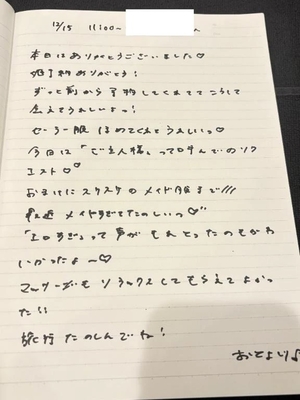 12/15 11:00〜
本日はありがとうございました♡
予約ありがとう!
ずっと前から予約してくれててこうして
会えてうれしいよっ!
セーラー服ほめてくれてうれしいっ♡
今日は「ご主人様」って呼んでのリク
エスト♡♡
おまけにスケスケのメイド服まで///
メイドすぎてたのしいっ♡
「エロすぎ」って声がもれとったのもかわ
いかったよ〜♡
マッサージもリラックスしてもらえてよかっ
た!!
旅行たのしんでね!
おとより♪